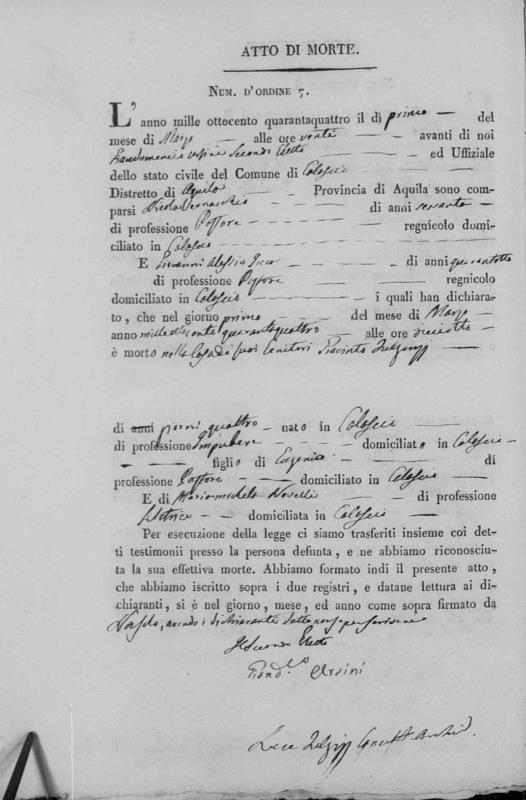 ATTO DI MORTE.
NUM. D'ORDINE 7.
L'anno mille ottocento quarantaquattro il dì primo del
mese di Marzo alle ore venti avanti di noi
Giandomenico Ursini Secondo Eletto ed Uffiziale
dello stato civile del Comune di
Distretto di Aquila Provincia di Aquila sono com-
parsi Nicola di anni sessanta
di professione Pastore regnicolo domi-
ciliato in
E Giovanni Alessio di anni quarantotto
di professione Pastore regnicolo
domiciliato in i quali han dichiara-
to, che nel giorno primo del mese di Marzo
anno mille ottocento quarantaquattro alle ore dieciotto
è morto nella Casa di suoi Genitori Giacinto
di anni giorni quattro nato in
di professione Impubere domiciliato in
figlio di Eugenio di
professione Pastore domiciliato in
E di Mariamichela Novelli di professione
Filatrice domiciliata in
Per esecuzione della legge ci siamo trasferiti insieme coi det-
ti testimonii presso la persona defunta, e ne abbiamo riconosciu-
ta la sua effettiva morte. Abbiamo formato indi il presente atto,
che abbiamo iscritto sopra i due registri, e datane lettura ai di-
chiaranti, si è nel giorno, mese, ed anno come sopra firmato da
Noi solo, avendo i dichiaranti detto non saper scrivere
Il Secondo Eletto
Giand.co Ursini
Luca